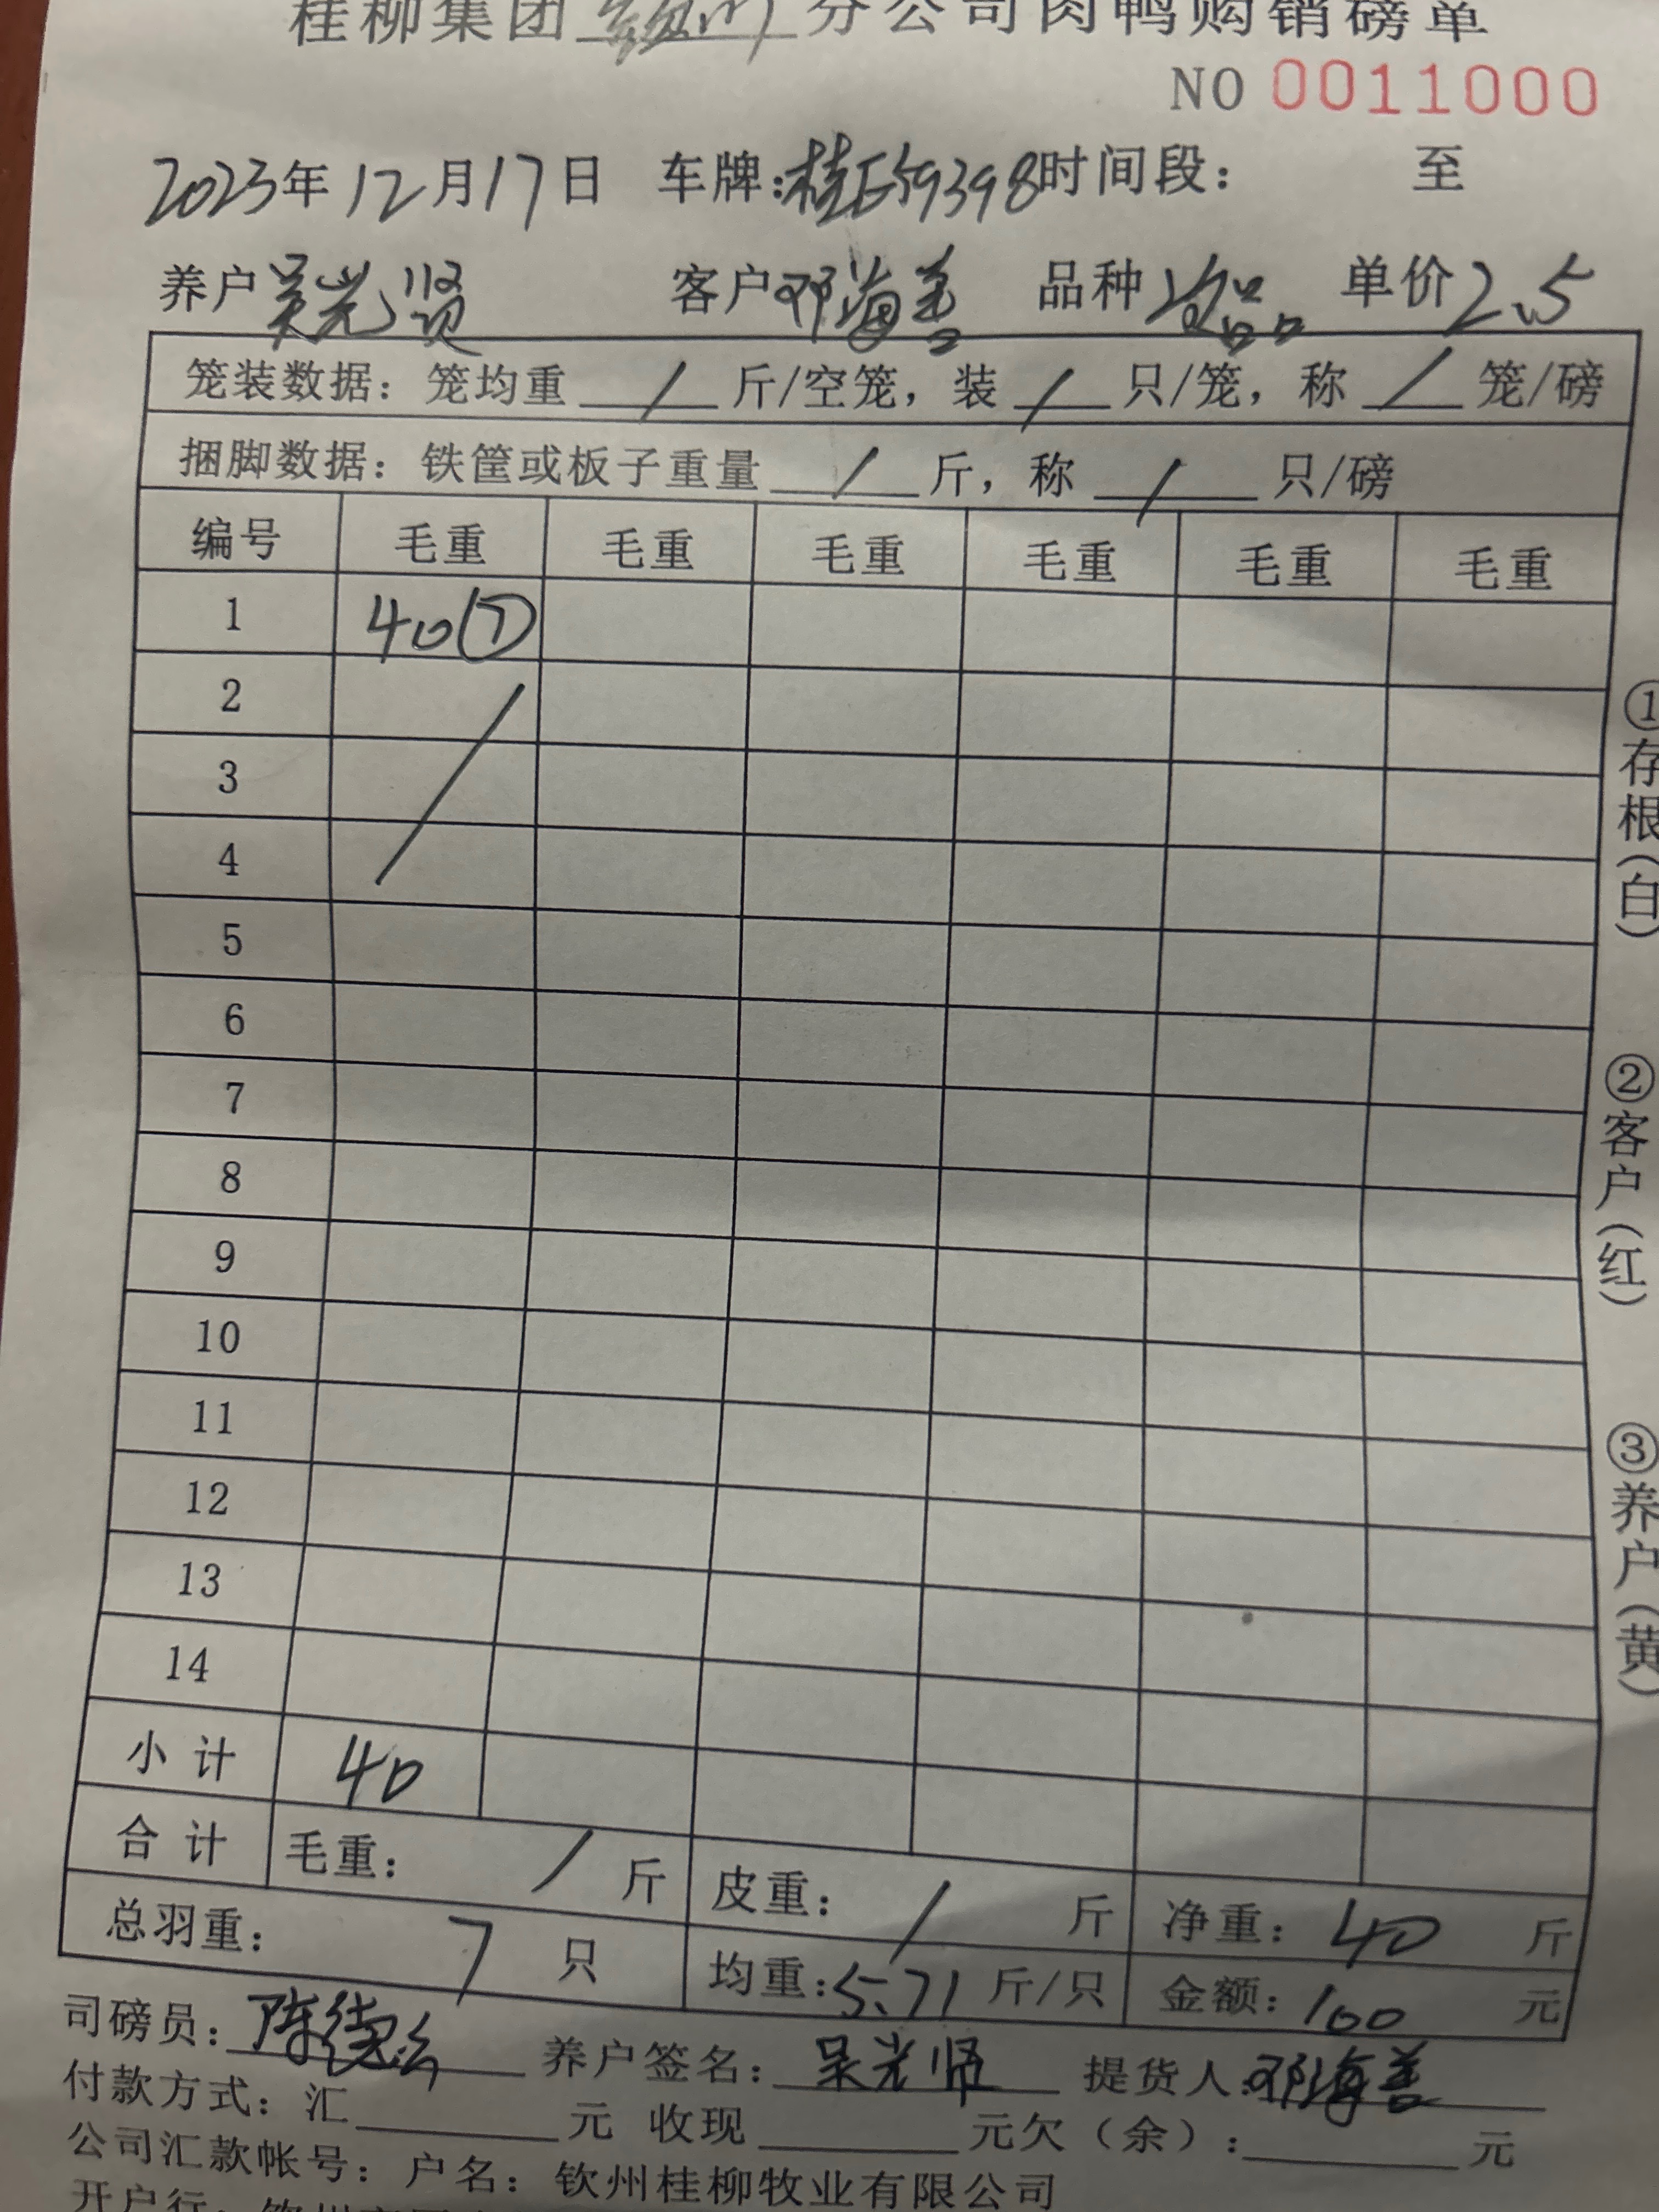 桂柳集团 分公司肉鸭购销磅单
NO 0011000
2023年12月17日 车牌:桂E59398时间段: 至
养户吴光贤 客户邓海善 品种次品 单价2.5
笼装数据: 笼均重 / 斤/空笼, 装 / 只/笼, 称 / 笼/磅
捆脚数据: 铁筐或板子重量 / 斤, 称 / 只/磅
编号 毛重 毛重 毛重 毛重 毛重 毛重
1 40(7)
2
3
4
5
6
7
8
9
10
11
12
13
14
小计 40
合计 毛重: / 斤 皮重: / 斤 净重: 40 斤
总羽重: 7 只 均重:5.71斤/只 金额:100 元
司磅员:陈德 养户签名:吴光贤 提货人:邓海善
付款方式: 汇 元 收现 元欠(余): 元
公司汇款帐号: 户名: 钦州桂柳牧业有限公司
开户行:
①存根(白)
②客户(红)
③养户(黄)